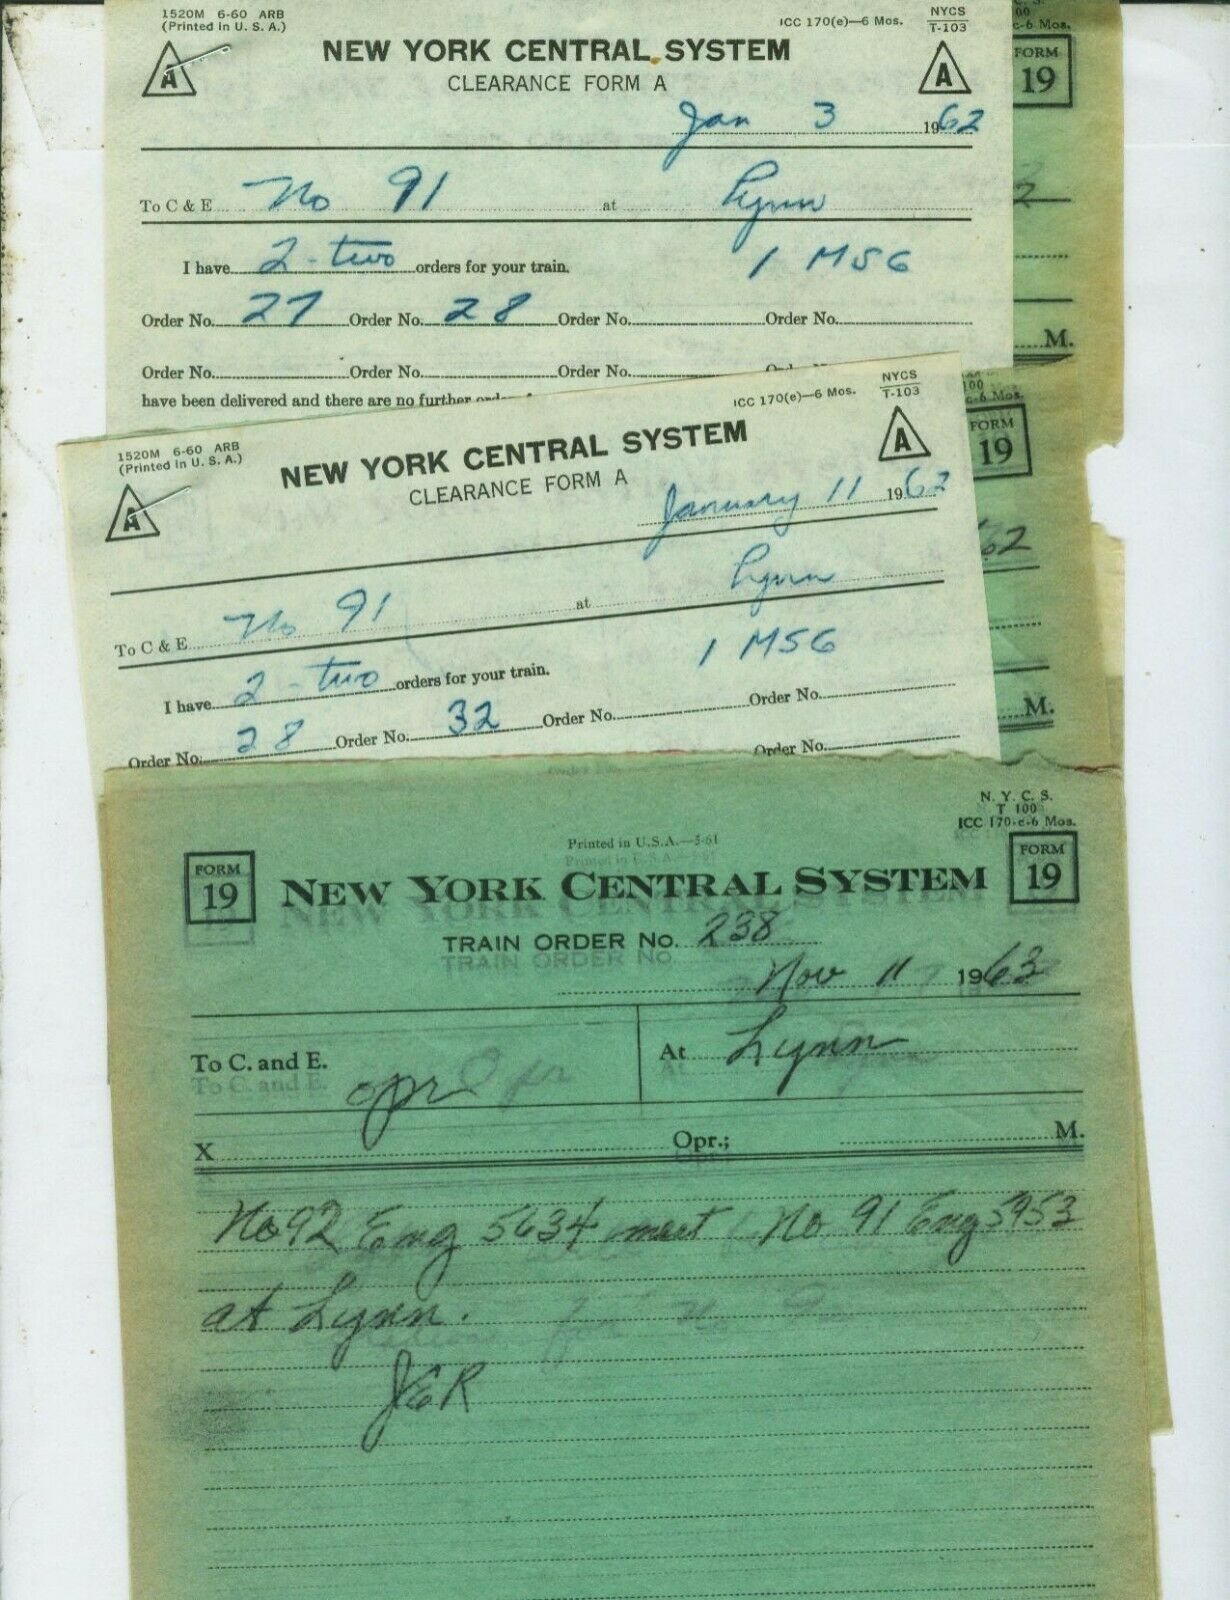 1520M 6-60 ARB
(Printed in U. S. A.)
ICC 170(e)—6 Mos.
NYCS
T-103
A
NEW YORK CENTRAL SYSTEM
A
CLEARANCE FORM A
Jan 3 1962
To C & E No 91 at Lynn
I have 2-two orders for your train. 1 MSG
Order No. 27 Order No. 28 Order No. Order No.
Order No. Order No. Order No.
have been delivered and there are no further
100
c-6 Mos.
FORM
19
2
M.
1520M 6-60 ARB
(Printed in U. S. A.)
ICC 170(e)—6 Mos.
NYCS
T-103
A
NEW YORK CENTRAL SYSTEM
A
CLEARANCE FORM A
January 11 1962
To C & E No 91 at Lynn
I have 2-two orders for your train. 1 MSG
Order No. 28 Order No. 32 Order No. Order No.
Order No.
100
c-6 Mos.
FORM
19
62
M.
N. Y. C. S.
T 100
ICC 170-c-6 Mos.
Printed in U.S.A.—5-61
FORM
19
NEW YORK CENTRAL SYSTEM
FORM
19
TRAIN ORDER No. 238
Nov 11 1963
To C. and E. opr At Lynn
X Opr.; M.
No 92 Eng 5634 meet No 91 Eng 5953
at Lynn.
JER